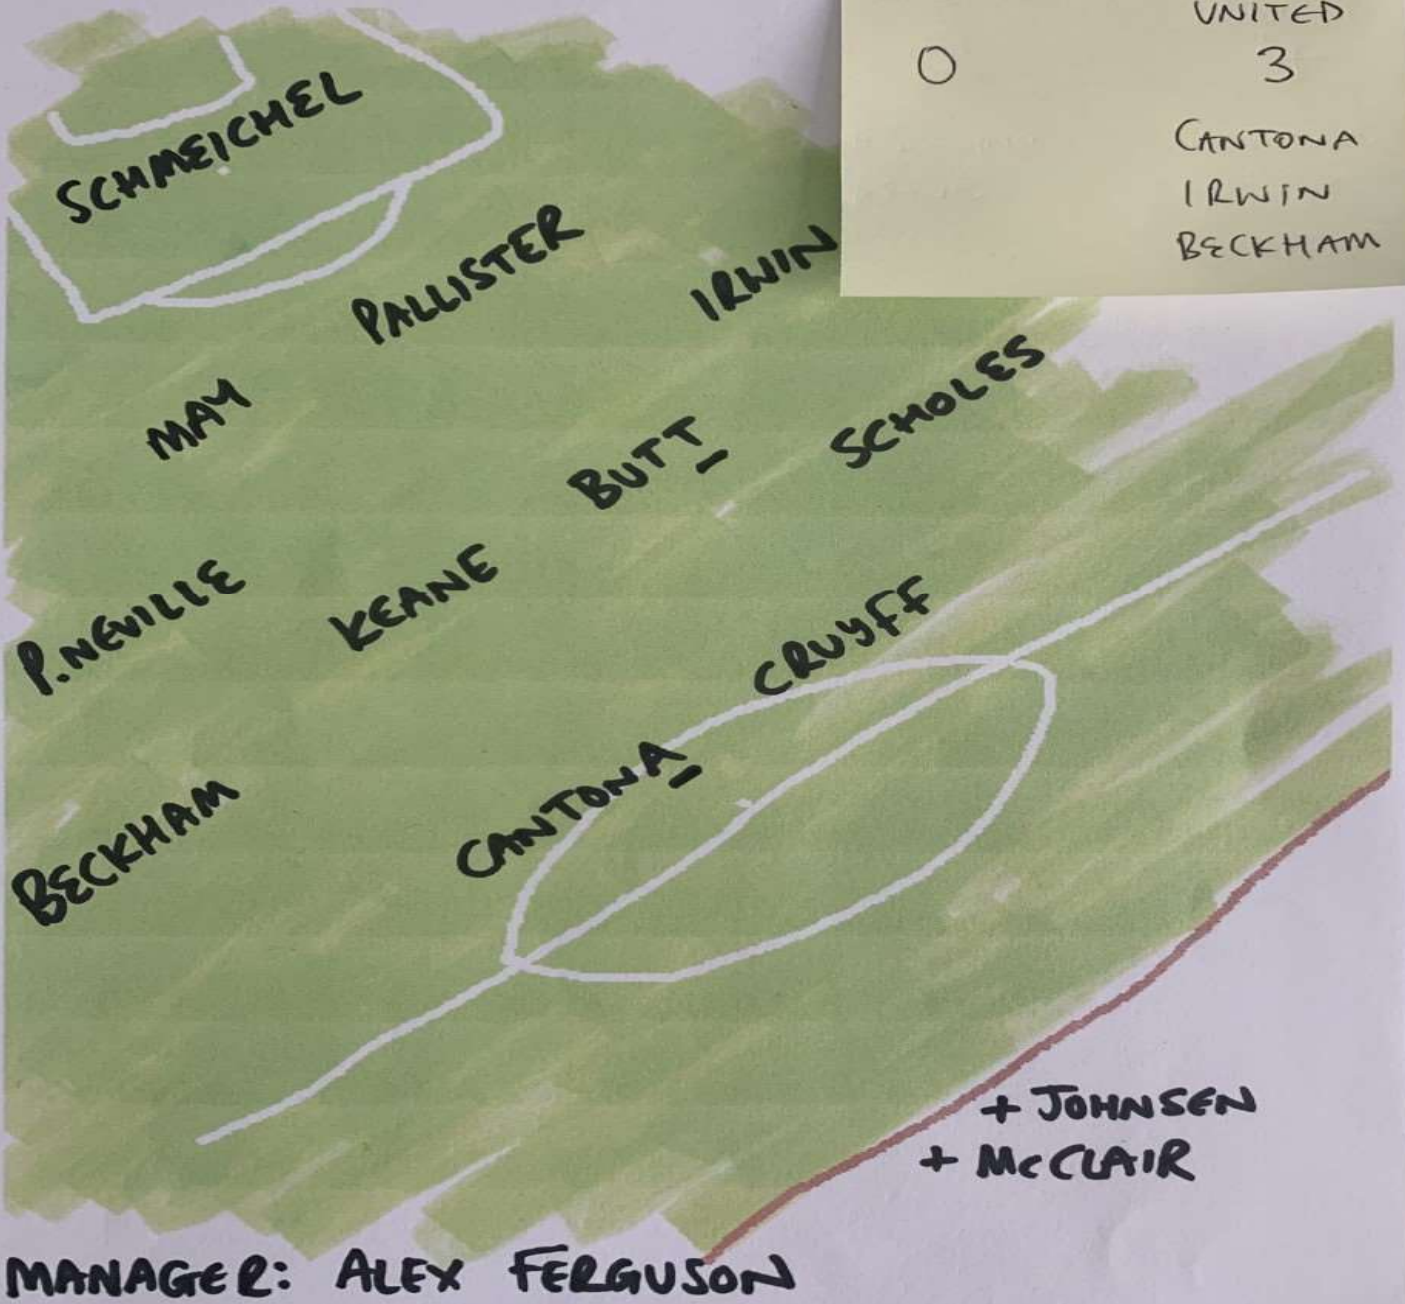 UNITED
0 3
CANTONA
IRWIN
BECKHAM
SCHMEICHEL
PALLISTER
IRWIN
MAY
BUTT
SCHOLES
P.NEVILLE
KEANE
CRUYFF
BECKHAM
CANTONA
+ JOHNSEN
+ McCLAIR
MANAGER: ALEX FERGUSON